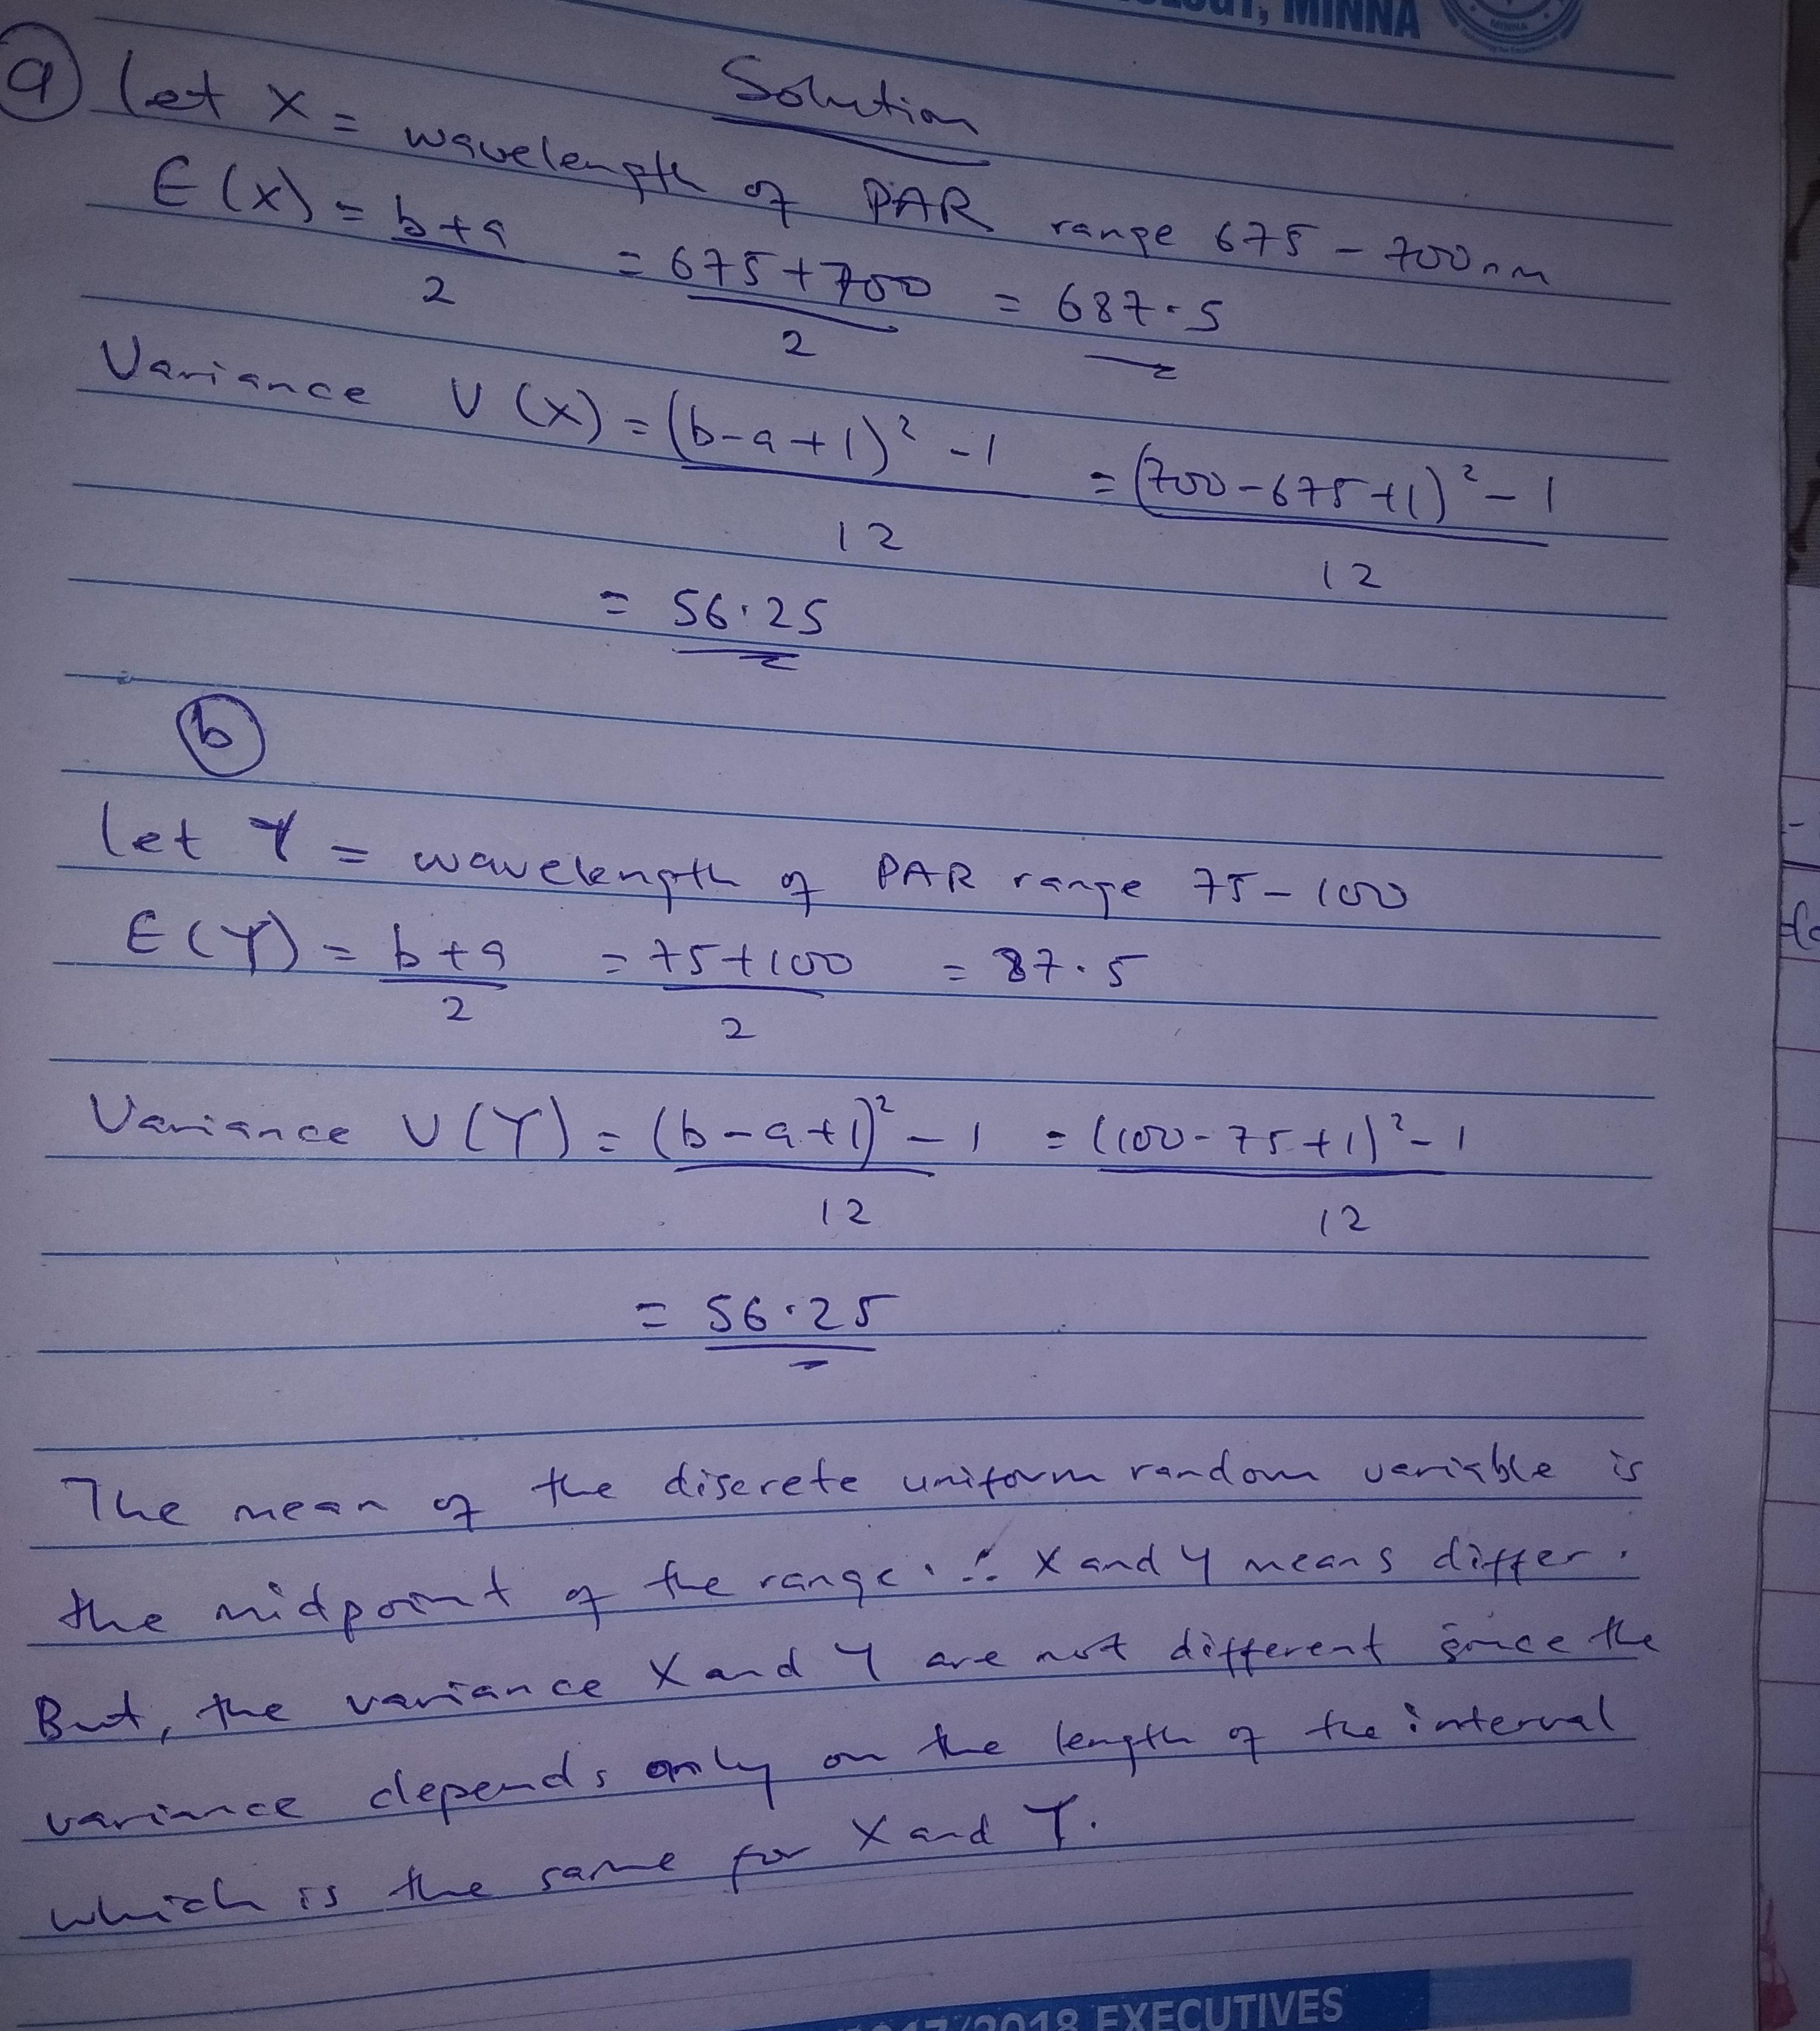 MINNA
MINNA
Solution
(a) let X = wavelength of PAR range 675 - 700nm
E(X) = b+a/2 = 675+700/2 = 687.5
Variance V(X) = (b-a+1)² - 1/12 = (700-675+1)² - 1/12
= 56.25
(b)
let Y = wavelength of PAR range 75 - 100
E(Y) = b+a/2 = 75+100/2 = 87.5
Variance V(Y) = (b-a+1)² - 1/12 = (100-75+1)² - 1/12
= 56.25
The mean of the discrete uniform random variable is
the midpoint of the range. ∴ X and Y means differ.
But, the variance X and Y are not different since the
variance depends only on the length of the interval
which is the same for X and Y.
2018 EXECUTIVES